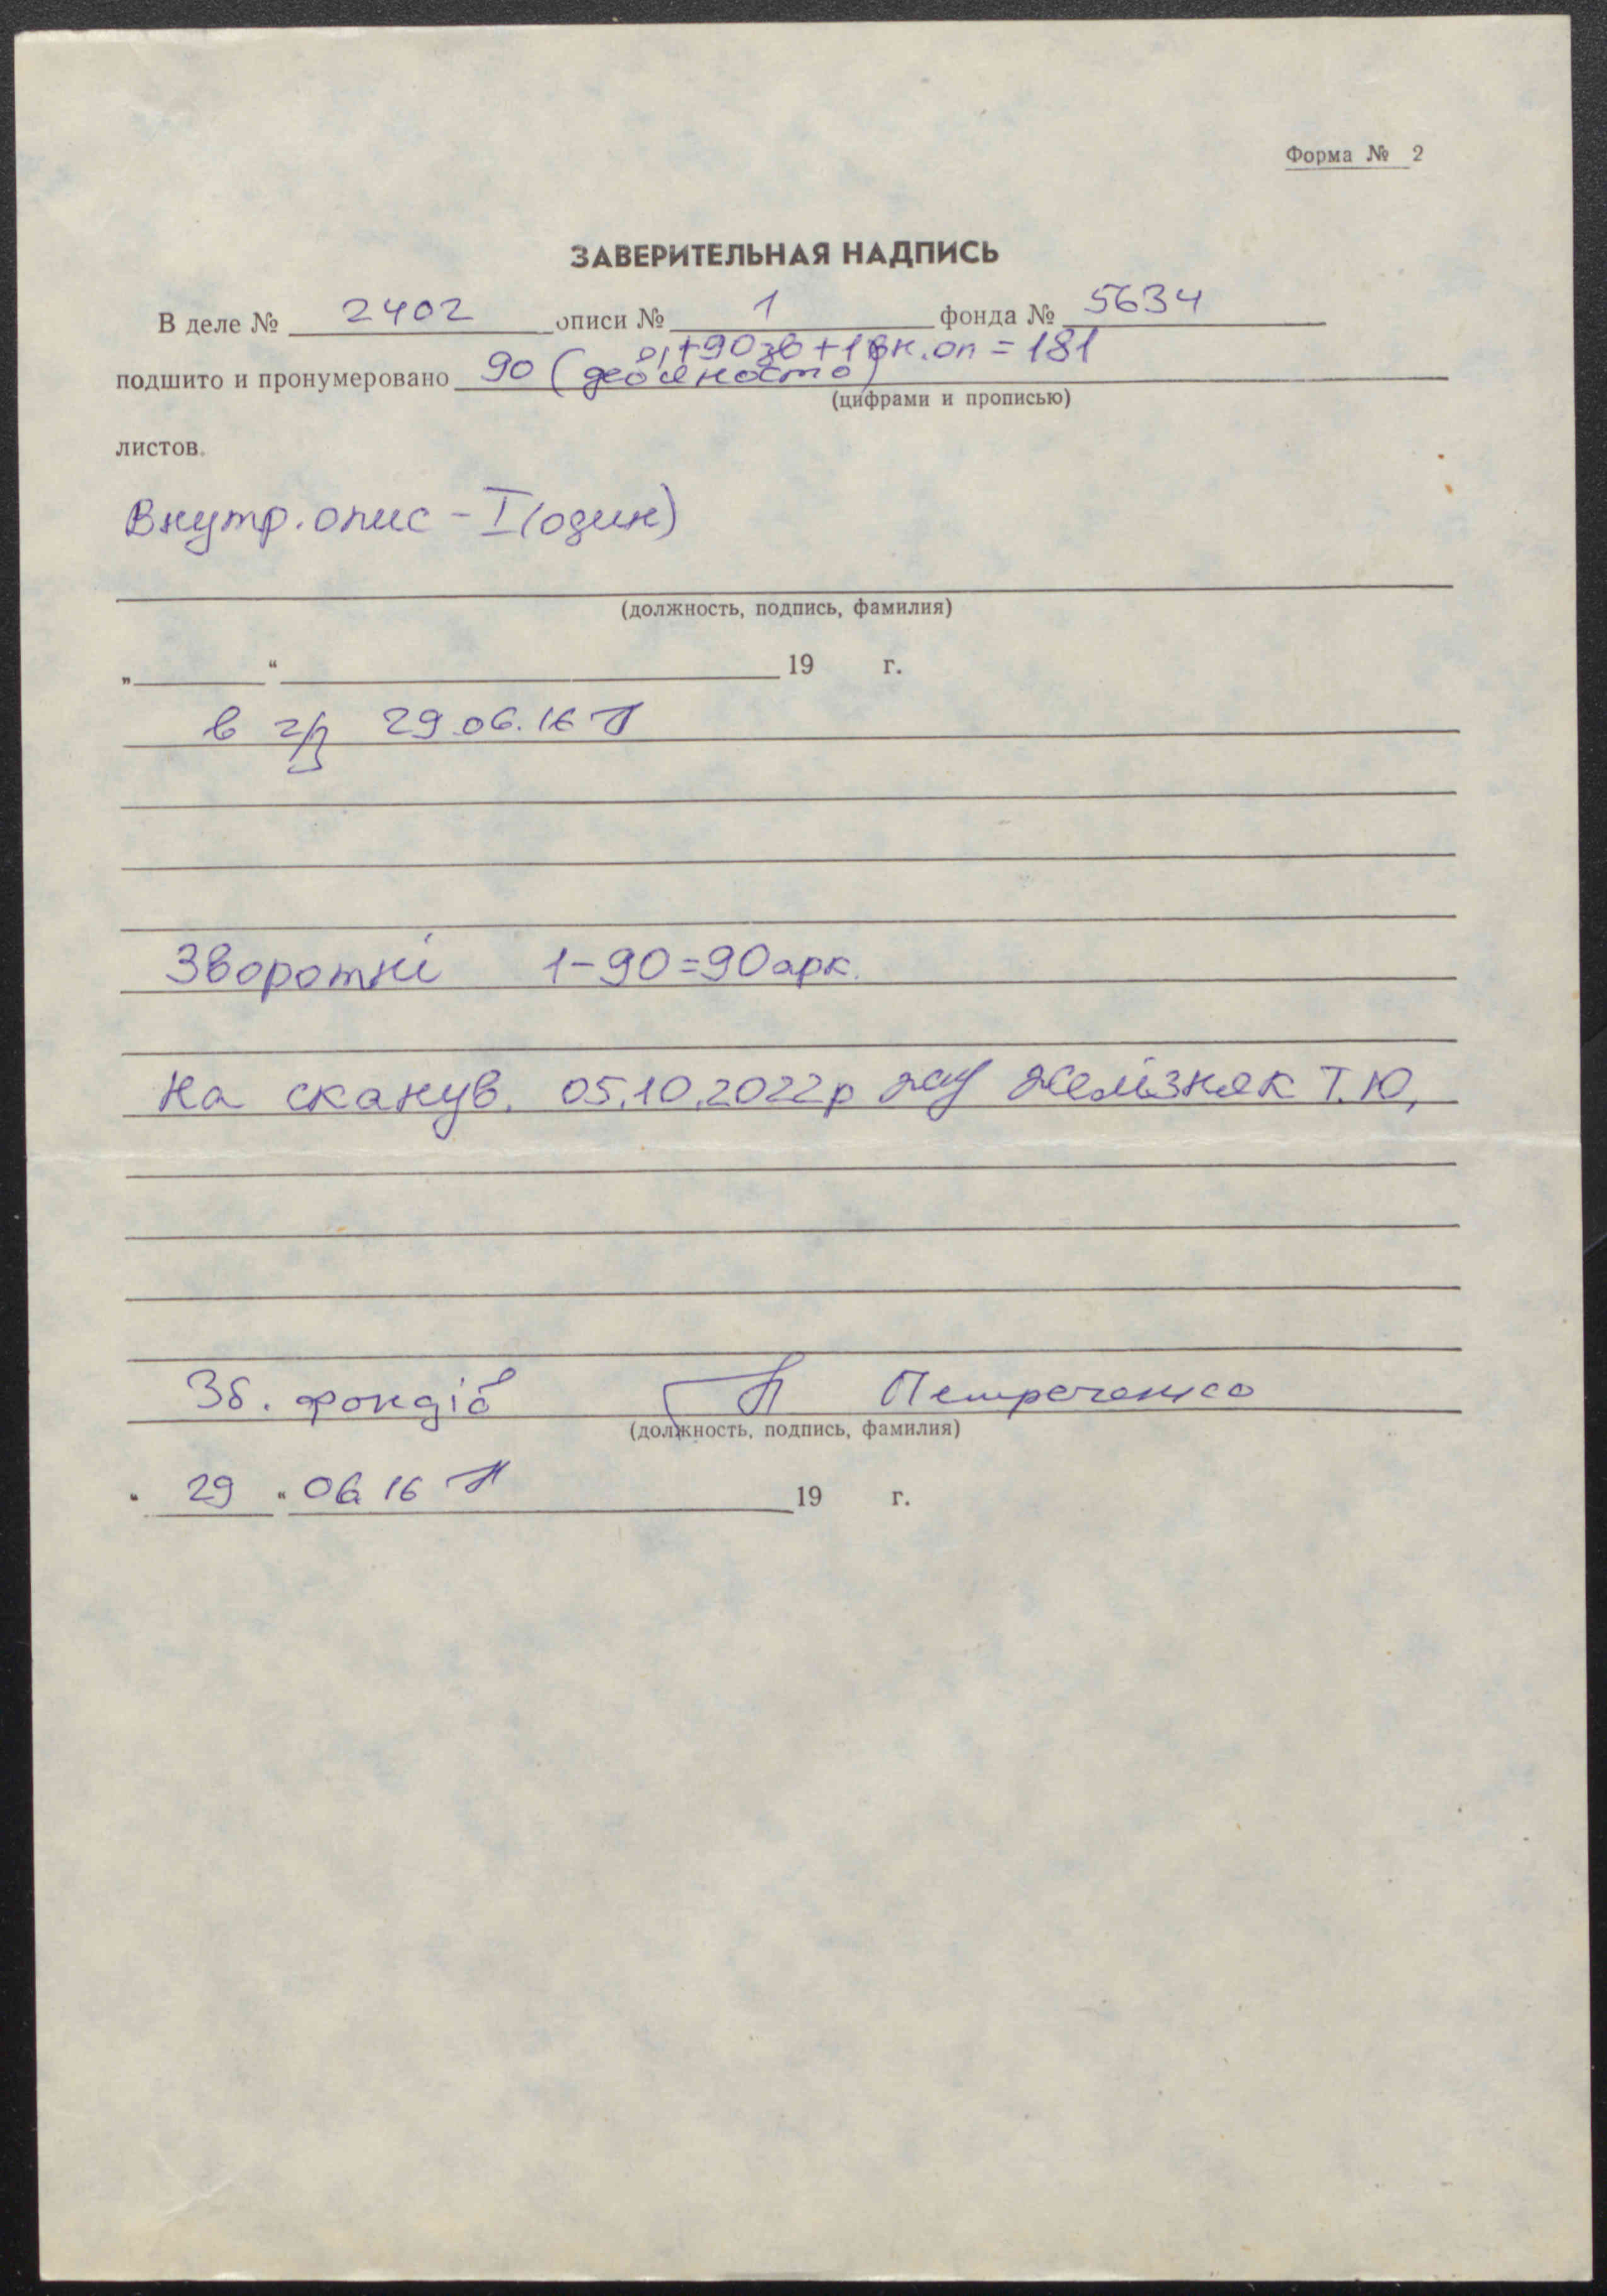 Форма № 2
ЗАВЕРИТЕЛЬНАЯ НАДПИСЬ
В деле № 2402 описи № 1 фонда № 5634
+90зв+1вк.оп=181
подшито и пронумеровано 90 (дев'яносто)
(цифрами и прописью)
листов.
Внутр. опис - I (один)
(должность, подпись, фамилия)
„ “ 19 г.
в 29.06.16
Зворотні 1-90=90арк.
на сканув. 05.10.2022р Желізняк Т.Ю.
Зб. фондів Петреченко
(должность, подпись, фамилия)
" 29 " 06 16 19 г.